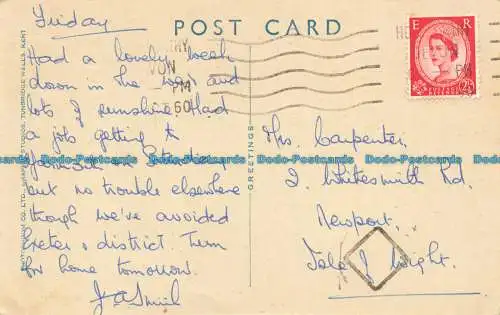 Friday
POST CARD
Had a lovely week
down in the west and
lots of sunshine. Had
a job getting to
on Saturday
but no trouble elsewhere
though we've avoided
Exeter & district. Turn
for home tomorrow.
GREETINGS
TUNBRIDGE WELLS, KENT
PM
60
E R
2½
Mrs. Carpenter,
2 Whitesmith Rd.
Newport,
Isle of Wight.
Dodo-Postcards Dodo-Postcards Dodo-Postcards Dodo-Postcards Dodo-Postcards